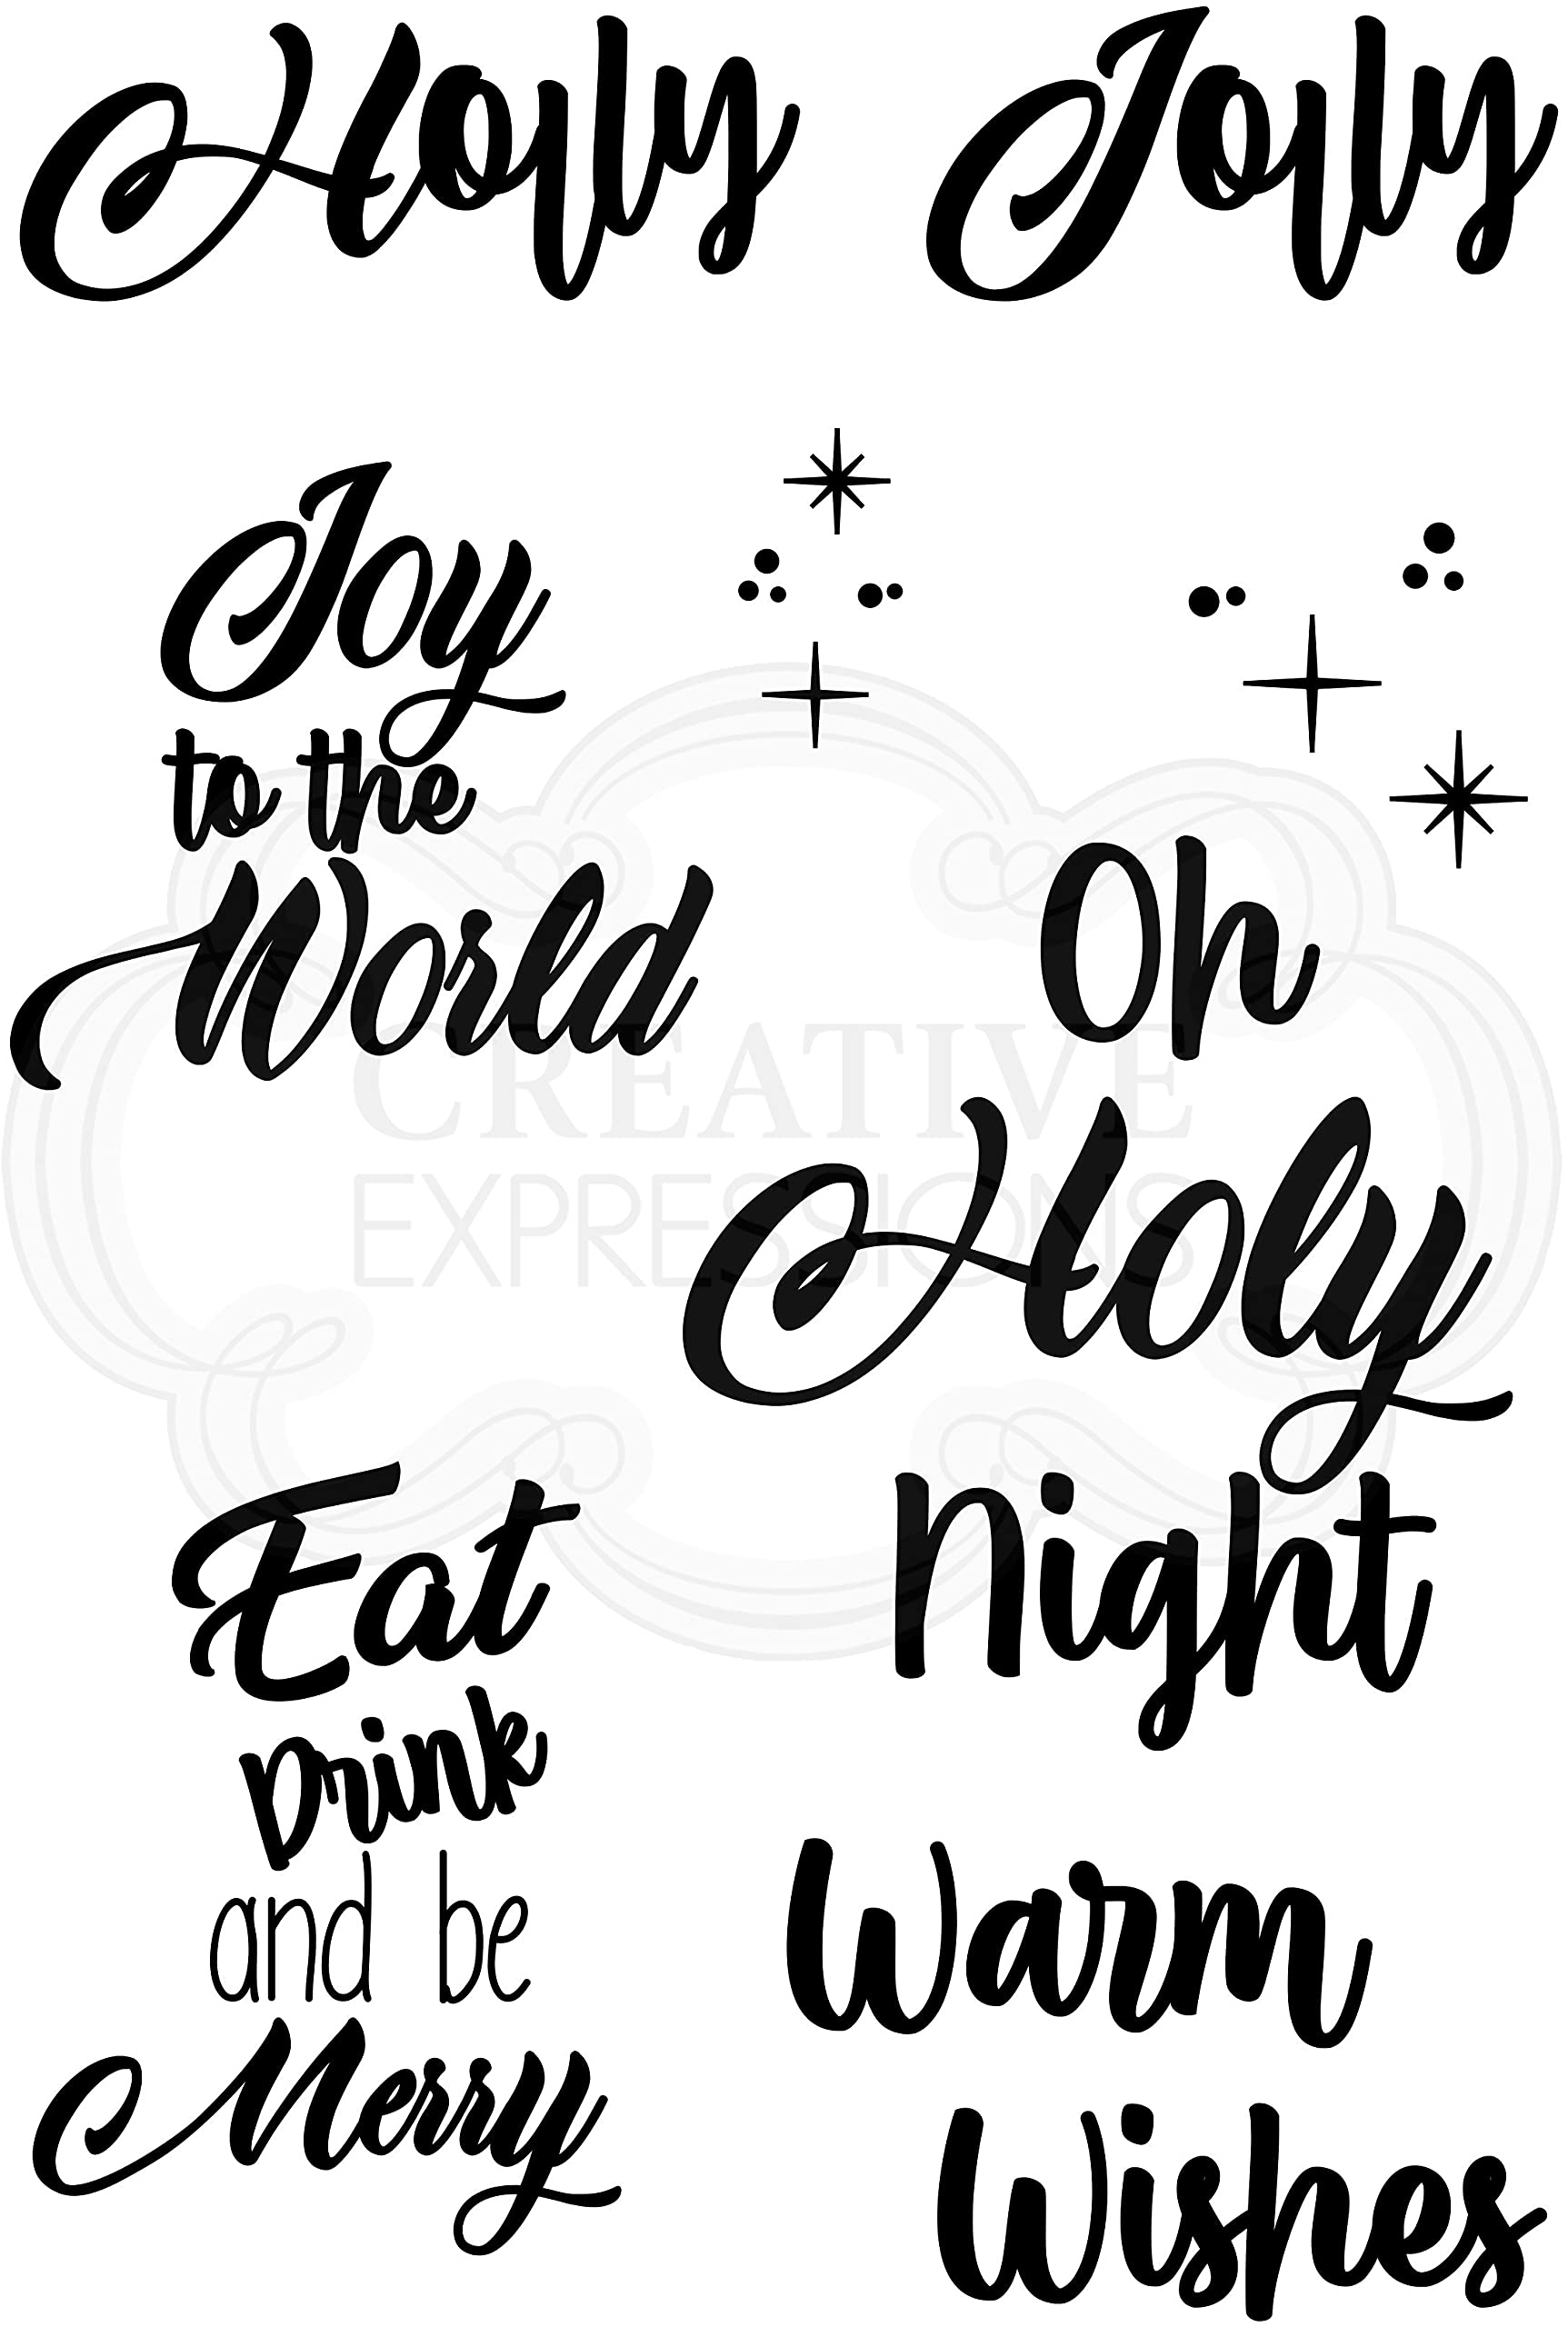 Holly
Jolly
Joy
to the
World
Oh
Holy
Night
CREATIVE
EXPRESSIONS
Eat
Drink
and be
Merry
Warm
Wishes